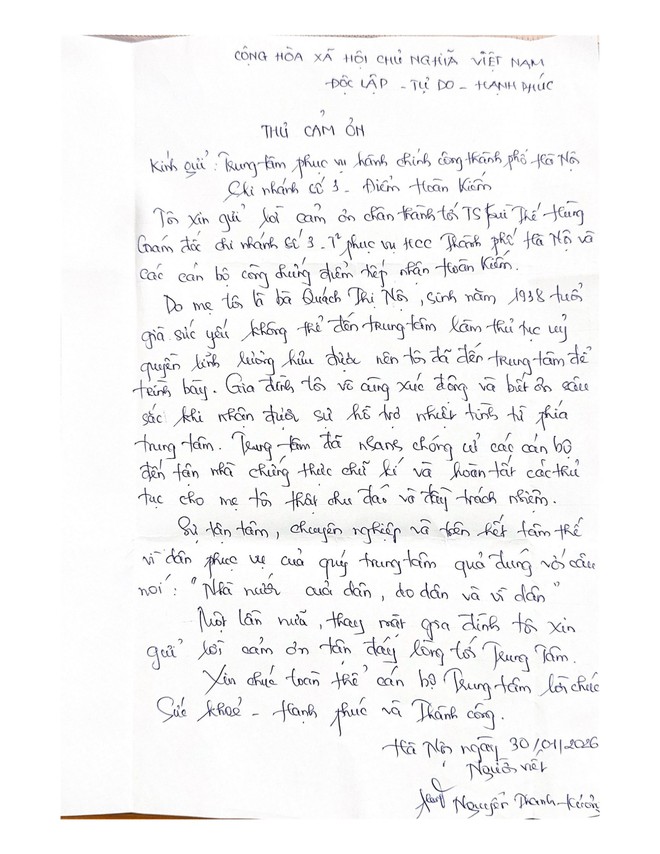 CỘNG HÒA XÃ HỘI CHỦ NGHĨA VIỆT NAM
ĐỘC LẬP - TỰ DO - HẠNH PHÚC
THƯ CẢM ƠN
Kính gửi: Trung tâm phục vụ hành chính công thành phố Hà Nội
Chi nhánh số 3 - Điểm Hoàn Kiếm
Tôi xin gửi lời cảm ơn chân thành tới TS Bùi Thế Hùng
Giám đốc chi nhánh số 3. T² phục vụ HCC Thành phố Hà Nội và
các cán bộ công chứng điểm tiếp nhận Hoàn Kiếm.
Do mẹ tôi là bà Quách Thị Nội, sinh năm 1938 tuổi
già sức yếu không thể đến trung tâm làm thủ tục uỷ
quyền lĩnh lương hưu được nên tôi đã đến trung tâm để
trình bày. Gia đình tôi vô cùng xúc động và biết ơn sâu
sắc khi nhận được sự hỗ trợ nhiệt tình từ phía
trung tâm. Trung tâm đã nhanh chóng cử các cán bộ
đến tận nhà chứng thực chữ kí và hoàn tất các thủ
tục cho mẹ tôi thật chu đáo và đầy trách nhiệm.
Sự tận tâm, chuyên nghiệp và trên hết tâm thế
vì dân phục vụ của quý trung tâm quả đúng với câu
nói: "Nhà nước của dân, do dân và vì dân"
Một lần nữa, thay mặt gia đình tôi xin
gửi lời cảm ơn tận đáy lòng tới Trung Tâm.
Xin chúc toàn thể cán bộ Trung tâm lời chúc
Sức khoẻ - Hạnh phúc và Thành công.
Hà Nội ngày 30/01/2026
Người viết
Nguyễn Thanh